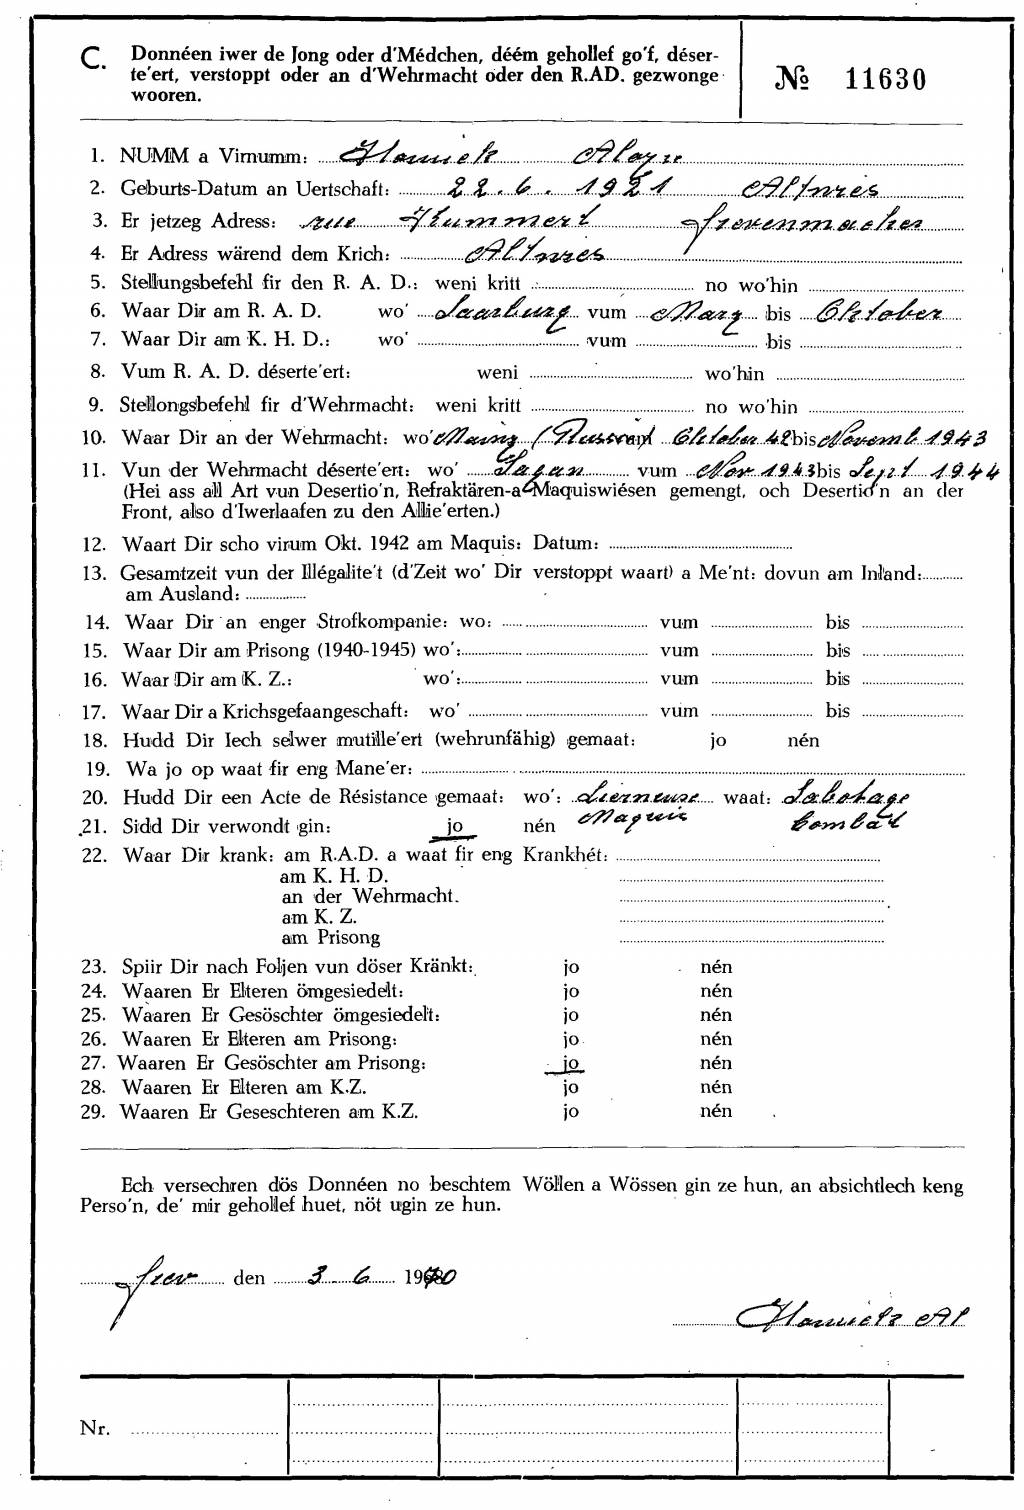 C. Donnéen iwer de Jong oder d'Médchen, déém gehollef go'f, déser-
te'ert, verstoppt oder an d'Wehrmacht oder den R.AD. gezwonge
wooren.
№ 11630
1. NUMM a Virnumm: Hamick Aloyse
2. Geburts-Datum an Uertschaft: 22.6.1921 Altwies
3. Er jetzeg Adress: rue Kummert Grevenmacher
4. Er Adress wärend dem Krich: Altwies
5. Stellungsbefehl fir den R. A. D.: weni kritt no wo'hin
6. Waar Dir am R. A. D. wo' Saarburg vum Marz bis Oktober
7. Waar Dir am K. H. D.: wo' vum bis
8. Vum R. A. D. déserte'ert: weni wo'hin
9. Stellongsbefehl fir d'Wehrmacht: weni kritt no wo'hin
10. Waar Dir an der Wehrmacht: wo' Mainz (Russian) Oktober 42 bis Novemb 1943
11. Vun der Wehrmacht déserte'ert: wo' Sagan vum Nov 1943 bis Sept 1944
(Hei ass all Art vun Desertio'n, Refraktären-a Maquiswiésen gemengt, och Desertio'n an der
Front, also d'Iwerlaafen zu den Allie'erten.)
12. Waart Dir scho virum Okt. 1942 am Maquis: Datum:
13. Gesamtzeit vun der Illégalite't (d'Zeit wo' Dir verstoppt waart) a Me'nt: dovun am Inland:
am Ausland:
14. Waar Dir an enger Strofkompanie: wo: vum bis
15. Waar Dir am Prisong (1940-1945) wo': vum bis
16. Waar Dir am K. Z.: wo': vum bis
17. Waar Dir a Krichsgefaangeschaft: wo' vum bis
18. Hudd Dir Iech selwer mutille'ert (wehrunfähig) gemaat: jo nén
19. Wa jo op waat fir eng Mane'er:
20. Hudd Dir een Acte de Résistance gemaat: wo': Lierneuse waat: Sabotage
21. Sidd Dir verwondt gin: jo nén Maquis Combat
22. Waar Dir krank: am R.A.D. a waat fir eng Krankhét:
am K. H. D.
an der Wehrmacht.
am K. Z.
am Prisong
23. Spiir Dir nach Foljen vun döser Kränkt: jo nén
24. Waaren Er Elteren ömgesiedelt: jo nén
25. Waaren Er Gesöschter ömgesiedelt: jo nén
26. Waaren Er Elteren am Prisong: jo nén
27. Waaren Er Gesöschter am Prisong: jo nén
28. Waaren Er Elteren am K.Z. jo nén
29. Waaren Er Geseschteren am K.Z. jo nén
Ech versechren dös Donnéen no beschtem Wöllen a Wössen gin ze hun, an absichtlech keng
Perso'n, de' mir gehollef huet, nöt ugin ze hun.
Grev den 3 6 1970
Hamick Al
Nr.